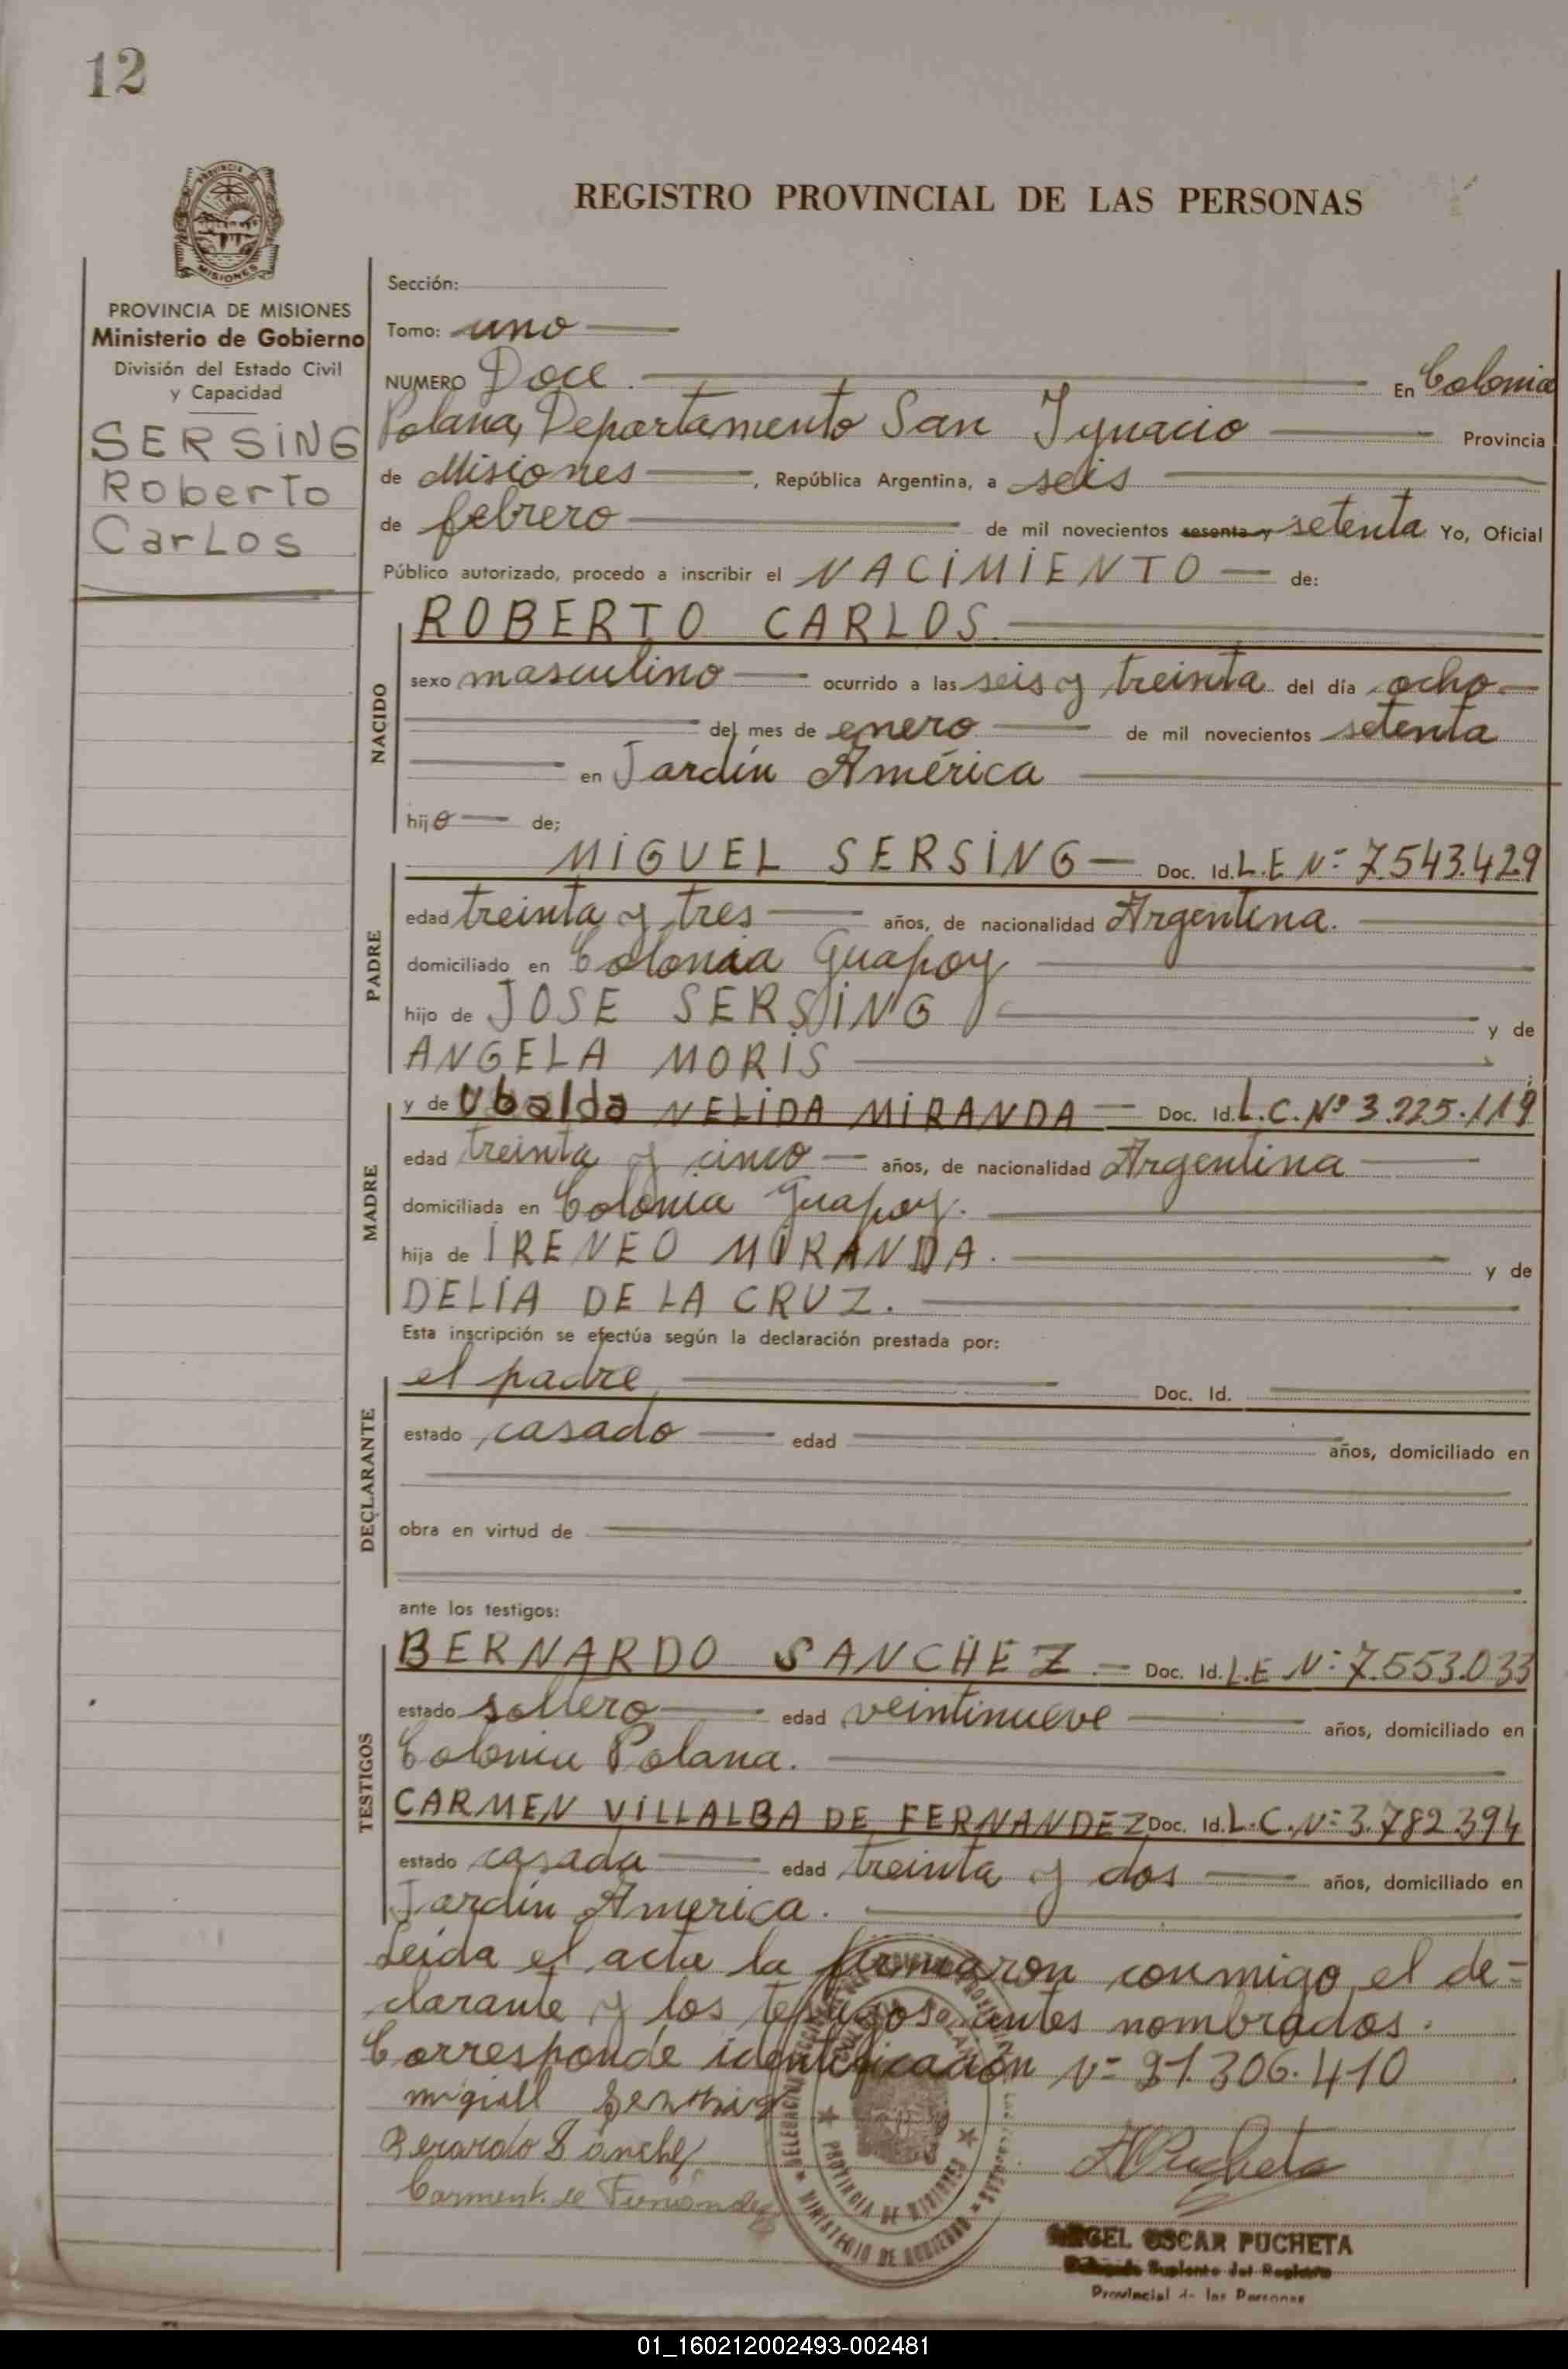 12
REGISTRO PROVINCIAL DE LAS PERSONAS
PROVINCIA DE MISIONES
Ministerio de Gobierno
División del Estado Civil
y Capacidad
SERSING
Roberto
Carlos
Sección:
Tomo: uno
NUMERO Doce. En Colonia
Polana, Departamento San Ignacio Provincia
de Misiones, República Argentina, a seis
de febrero de mil novecientos sesenta y setenta Yo, Oficial
Público autorizado, procedo a inscribir el NACIMIENTO de:
NACIDO
ROBERTO CARLOS.
sexo masculino ocurrido a las seis y treinta del día ocho
del mes de enero de mil novecientos setenta
en Jardín América
hijo de;
PADRE
MIGUEL SERSING Doc. Id. L.E Nº 7.543.429
edad treinta y tres años, de nacionalidad Argentina.
domiciliado en Colonia Guapoy
hijo de JOSE SERSING y de
ANGELA MORIS
MADRE
y de Ubalda NELIDA MIRANDA Doc. Id. L.C. Nº 3.225.119
edad treinta y cinco años, de nacionalidad Argentina
domiciliada en Colonia Guapoy.
hija de IRENEO MIRANDA. y de
DELIA DE LA CRUZ.
Esta inscripción se efectúa según la declaración prestada por:
DECLARANTE
el padre, Doc. Id.
estado casado edad años, domiciliado en
obra en virtud de
ante los testigos:
TESTIGOS
BERNARDO SANCHEZ. Doc. Id. L.E Nº 7.553.033
estado soltero edad veintinueve años, domiciliado en
Colonia Polana.
CARMEN VILLALBA DE FERNANDEZ Doc. Id. L.C. Nº 3.782.394
estado casada edad treinta y dos años, domiciliado en
Jardín America.
Leida el acta la firmaron conmigo el de-
clarante y los testigos antes nombrados.
Corresponde identificación Nº 21.306.410
Sánchez
Carmen de Fernandez
PROVINCIA DE MISIONES
MINISTERIO DE GOBIERNO
APucheta
ANGEL OSCAR PUCHETA
Suplente del Registro
Provincial de las Personas
01_160212002493-002481